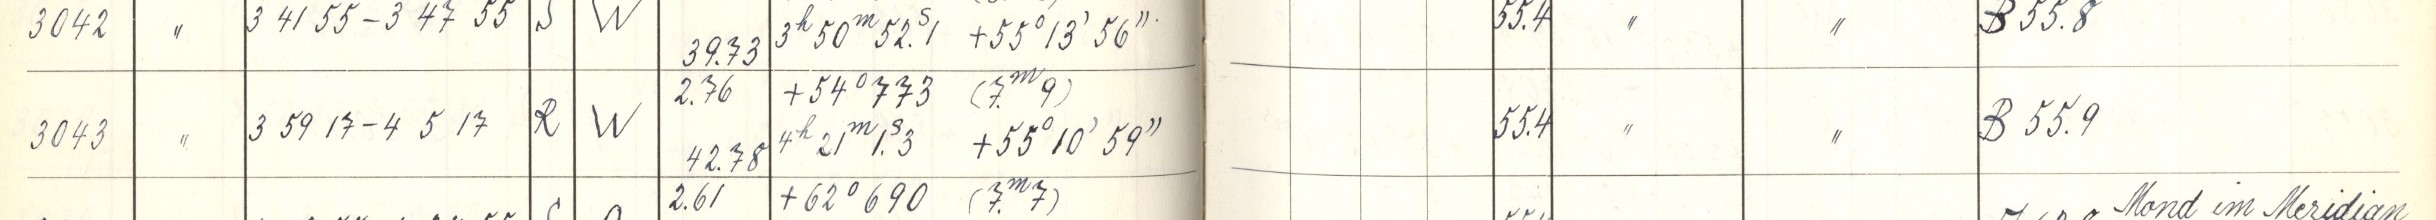 3042 " 3 41 55 - 3 47 55 S W 39.73 3h 50m 52.s1 +55° 13' 56" 55.4 " " B 55.8
2.76 +54° 773 (7.m9)
3043 " 3 59 17 - 4 5 17 R W 4h 21m 1.s3 +55° 10' 59" 55.4 " " B 55.9
42.78
2.61 +62° 690 (7.m7) Mond im Meridian